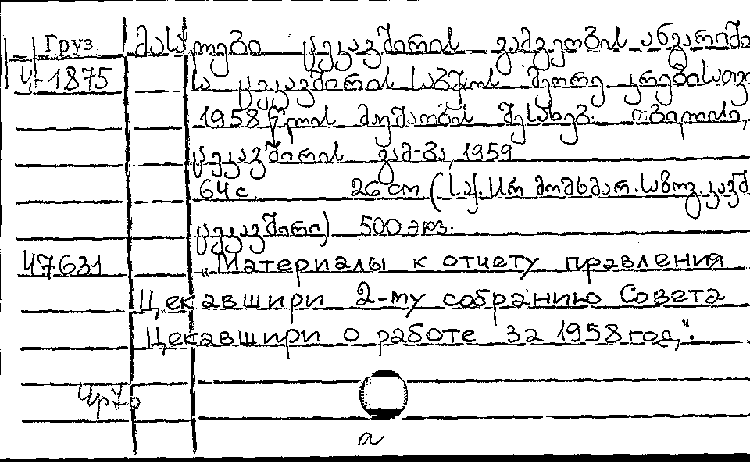 Груз მასალები ცეკავშირის გამგეობის ანგარიში
4-1875 სა ცეკავშირის საბჭოს მეორე კრებისათვ
1958 წლის მუშაობის შესახებ. თბილისი,
ცეკავშირის გამ-ბა, 1959
64 с. 26 cm (საქ. სსრ მომხმარ. საზოგ. კავშ.
ცეკავშირი) 500 экз.
47631 „Материалы к отчету правления
Цекавшири 2-му собранию Совета
Цекавшири о работе за 1958 год“.
а